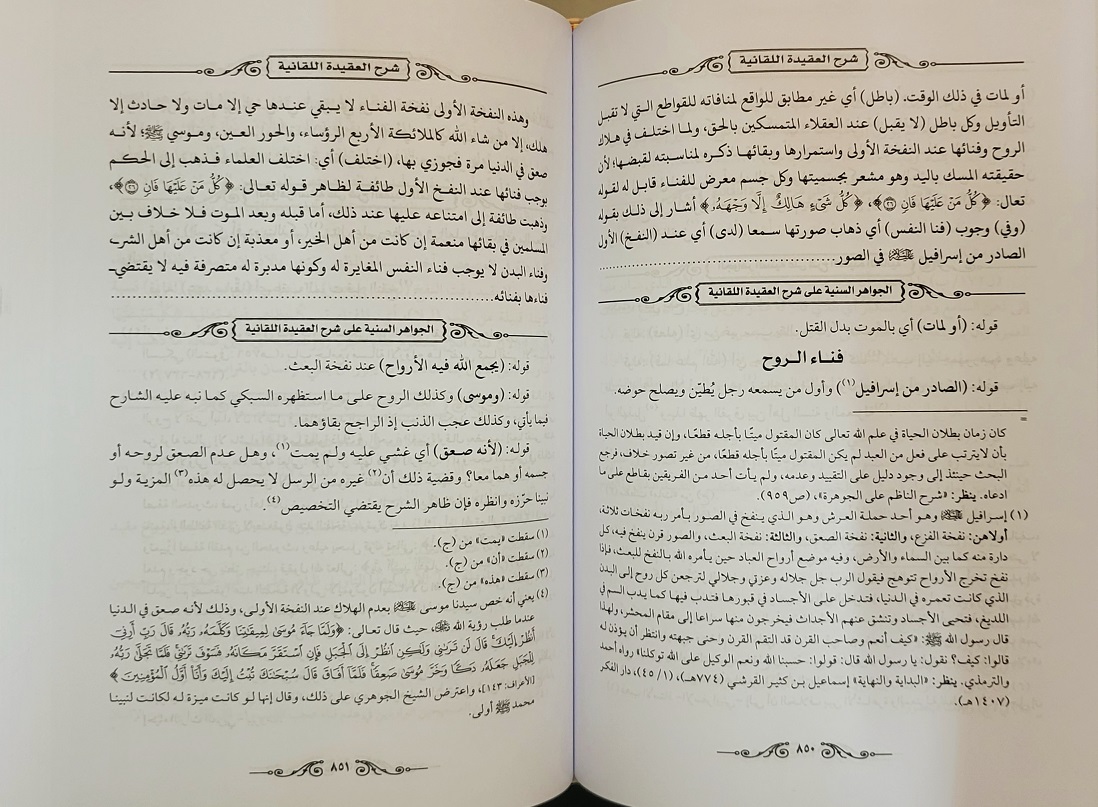 شرح العقيدة اللقانية
أو لمات في ذلك الوقت. (باطل) أي غير مطابق للواقع لمنافاته للقواطع التي لا تقبل
التأويل وكل باطل (لا يقبل) عند العقلاء المتمسكين بالحق، ولما اختلف في هلاك
الروح وفنائها عند النفخة الأولى واستمرارها وبقائها ذكره لمناسبته لقبضها؛ لأن
حقيقته المسك باليد وهو مشعر بجسميتها وكل جسم معرض للفناء قابل له لقوله
تعال: ﴿كُلُّ مَنْ عَلَيْهَا فَانٍ ٢٦﴾، ﴿كُلُّ شَيْءٍ هَالِكٌ إِلَّا وَجْهَهُ﴾ أشار إلى ذلك بقوله
(وفي) وجوب (فنا النفس) أي ذهاب صورتها سمعا (لدى) أي عند (النفخ) الأول
الصادر من إسرافيل ﷺ في الصور......................................
الجواهر السنية على شرح العقيدة اللقانية
قوله: (أو لمات) أي بالموت بدل القتل.
فناء الروح
قوله: (الصادر من إسرافيل(١)) وأول من يسمعه رجل يُطيّن ويصلح حوضه.
=
كان زمان بطلان الحياة في علم الله تعالى كان المقتول ميتًا بأجله قطعًا، وإن قيد بطلان الحياة
بأن لا يترتب على فعل من العبد لم يكن المقتول ميتًا بأجله قطعًا، من غير تصور خلاف، فرجع
البحث حينئذ إلى وجود دليل على التقييد وعدمه، ولم يأت أحد من الفريقين بقاطع على ما
ادعاه. ينظر: «شرح الناظم على الجوهرة»، (ص٩٥٩).
(١) إسرافيل ﷺ وهو أحد حملة العرش وهو الذي ينفخ في الصور بأمر ربه نفخات ثلاثة،
أولاهن: نفخة الفزع، والثانية: نفخة الصعق، والثالثة: نفخة البعث، والصور قرن ينفخ فيه، كل
دارة منه كما بين السماء والأرض، وفيه موضع أرواح العباد حين يأمره الله بالنفخ للبعث، فإذا
نفخ تخرج الأرواح تتوهج فيقول الرب جل جلاله وعزتي وجلالي لترجعن كل روح إلى البدن
الذي كانت تعمره في الدنيا، فتدخل على الأجساد في قبورها فتدب فيها كما يدب السم في
اللديغ، فتحيى الأجساد وتنشق عنهم الأجداث فيخرجون منها سراعا إلى مقام المحشر، ولهذا
قال رسول الله ﷺ: «كيف أنعم وصاحب القرن قد التقم القرن وحنى جبهته وانتظر أن يؤذن له
قالوا: كيف؟ نقول: يا رسول الله قال: قولوا: حسبنا الله ونعم الوكيل على الله توكلنا» رواه أحمد
والترمذي. ينظر: «البداية والنهاية» إسماعيل بن كثير القرشي (٧٧٤هـ)، (٤٥/١)، دار الفكر
(١٤٠٧هـ).
٨٥٠
شرح العقيدة اللقانية
وهذه النفخة الأولى نفخة الفناء لا يبقي عندها حي إلا مات ولا حادث إلا
هلك، إلا من شاء الله كالملائكة الأربع الرؤساء، والحور العين، وموسى ﷺ؛ لأنه
صعق في الدنيا مرة فجوزي بها، (اختلف) أي: اختلف العلماء فذهب إلى الحكم
بوجب فنائها عند النفخ الأول طائفة لظاهر قوله تعالى: ﴿كُلُّ مَنْ عَلَيْهَا فَانٍ ٢٦﴾،
وذهبت طائفة إلى امتناعه عليها عند ذلك، أما قبله وبعد الموت فلا خلاف بين
المسلمين في بقائها منعمة إن كانت من أهل الخير، أو معذبة إن كانت من أهل الشر
وفناء البدن لا يوجب فناء النفس المغايرة له وكونها مدبرة له متصرفة فيه لا يقتضي
فناءها بفنائه......................................
الجواهر السنية على شرح العقيدة اللقانية
قوله: (يجمع الله فيه الأرواح) عند نفخة البعث.
قوله: (وموسى) وكذلك الروح على ما استظهره السبكي كما نبه عليه الشارح
فيما يأتي، وكذلك عجب الذنب إذ الراجح بقاؤهما.
قوله: (لأنه صعق) أي غشي عليه ولم يمت(١)، وهل عدم الصعق لروحه أو
جسمه أو هما معا؟ وقضية ذلك أن(٢) غيره من الرسل لا يحصل له هذه(٣) المزية ولو
نبينا حرّزه وانظره فإن ظاهر الشرح يقتضي التخصيص(٤).
(١) سقطت «يمت» من (ج).
(٢) سقطت «أن» من (ج).
(٣) سقطت «هذه» من (ج).
(٤) يعني أنه خص سيدنا موسى ﷺ بعدم الهلاك عند النفخة الأولى، وذلك لأنه صعق في الدنيا
عندما طلب رؤية الله ﷻ، حيث قال تعالى: ﴿وَلَمَّا جَاءَ مُوسَى لِمِيقَاتِنَا وَكَلَّمَهُ رَبُّهُ قَالَ رَبِّ أَرِنِي
أَنظُرْ إِلَيْكَ قَالَ لَن تَرَانِي وَلَكِنِ انظُرْ إِلَى الْجَبَلِ فَإِنِ اسْتَقَرَّ مَكَانَهُ فَسَوْفَ تَرَانِي فَلَمَّا تَجَلَّى رَبُّهُ
لِلْجَبَلِ جَعَلَهُ دَكًّا وَخَرَّ مُوسَى صَعِقًا فَلَمَّا أَفَاقَ قَالَ سُبْحَانَكَ تُبْتُ إِلَيْكَ وَأَنَا أَوَّلُ الْمُؤْمِنِينَ﴾
[الأعراف: ١٤٣]، واعترض الشيخ الجوهري على ذلك، وقال إنها لو كانت ميزة له لكانت لنبينا
محمد ﷺ أولى.
٨٥١